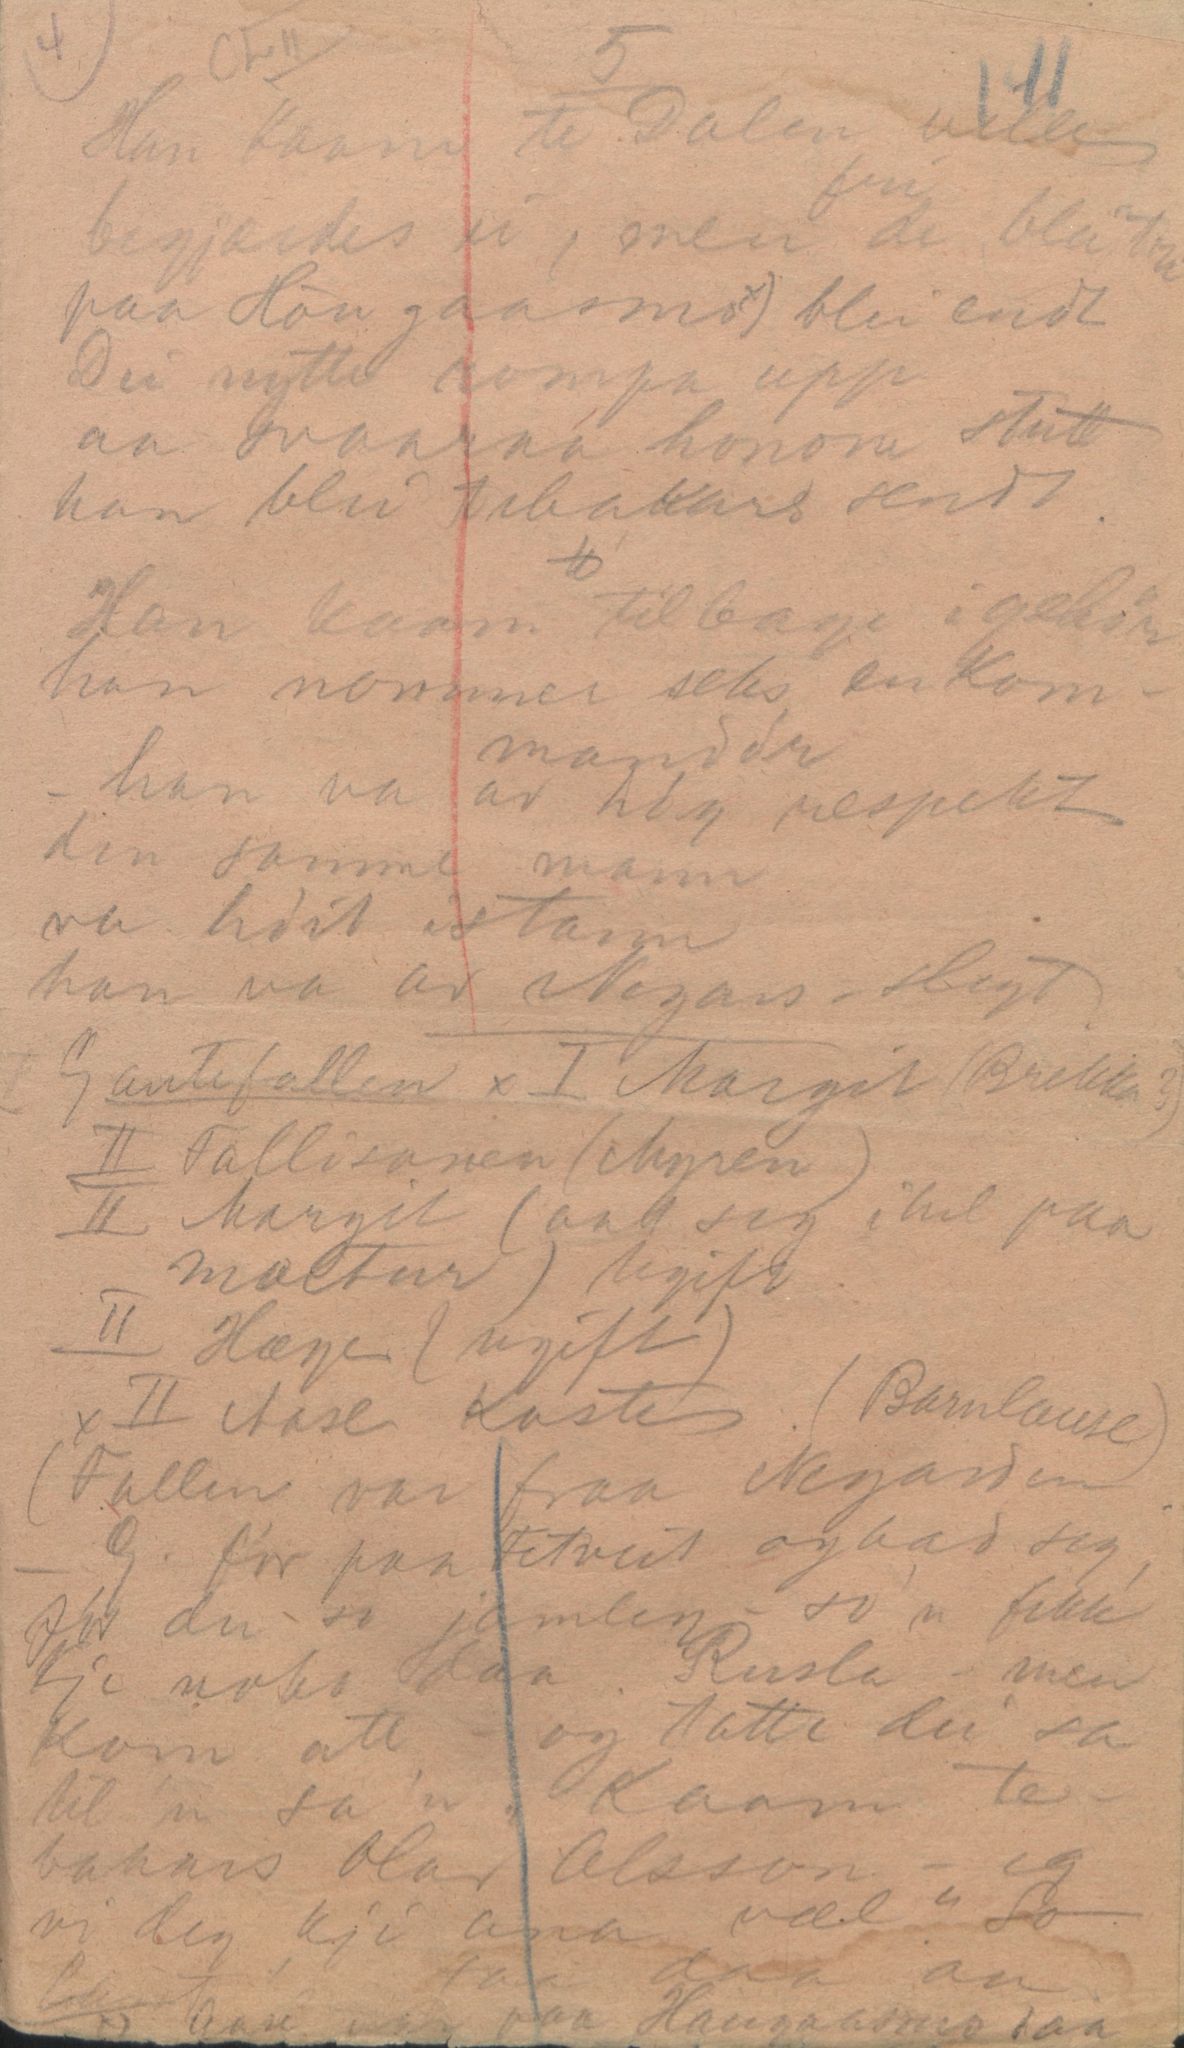 4 5 11
Han kaam te Dalen ville
fri
begjærdes ei, men de blei
paa Höugaasmo x) blei endt
Dei nytte rompa upp
aa svaaraa honom stutt
han blei tebakars sendt.
Han kaam tilbage igelör
han nommer seks en Kom-
mandör
- han va av hög respekt
den samme mann
va höit istann
han va av Negars-slegt
Gautefallen x I Margit (Brekka?)
II Tallisaren (Myren)
II Margit (aad seg ihel paa
mæltur) ugift
II Hæge (ugift)
x II Aase Kaste (Barnlause)
(Fallen var fraa Negarden
- G. för paa Fitveit og bad seg,
för du - so jamleg - so'n fekk
kje noko daa. Rusla - men
kom att - og tatte dei sa
til'n sa'n. Kaam te-
bakars Olav Olsson - eg
vi deg kji ana væl" So
taa daa an
x) Aase var paa Haugaasmo daa